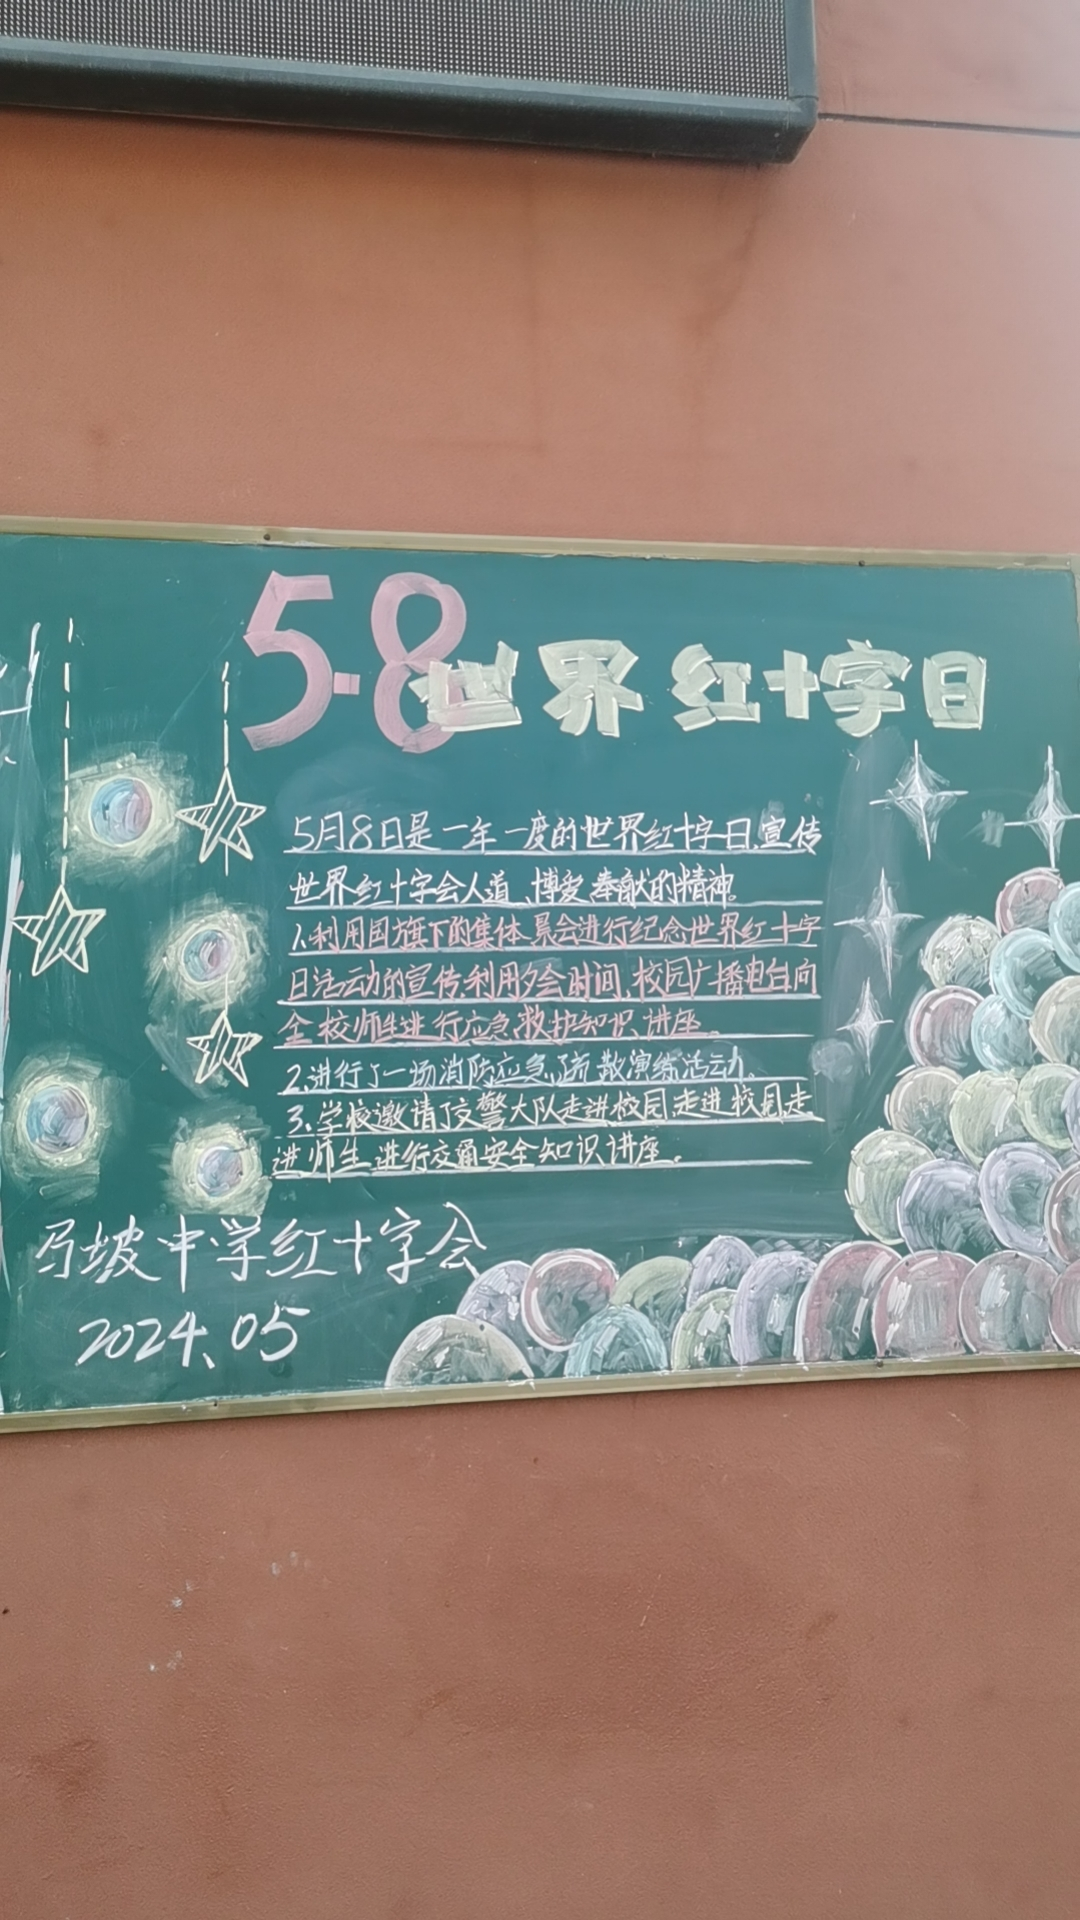 5.8世界红十字日
5月8日是一年一度的世界红十字日,宣传
世界红十字会人道、博爱、奉献的精神。
1.利用国旗下的集体晨会进行纪念世界红十字
日活动的宣传,利用夕会时间,校园广播电台向
全校师生进行应急救护知识讲座。
2.进行了一场消防应急疏散演练活动。
3.学校邀请了交警大队走进校园走进校园走
进师生进行交通安全知识讲座。
马坡中学红十字会
2024.05